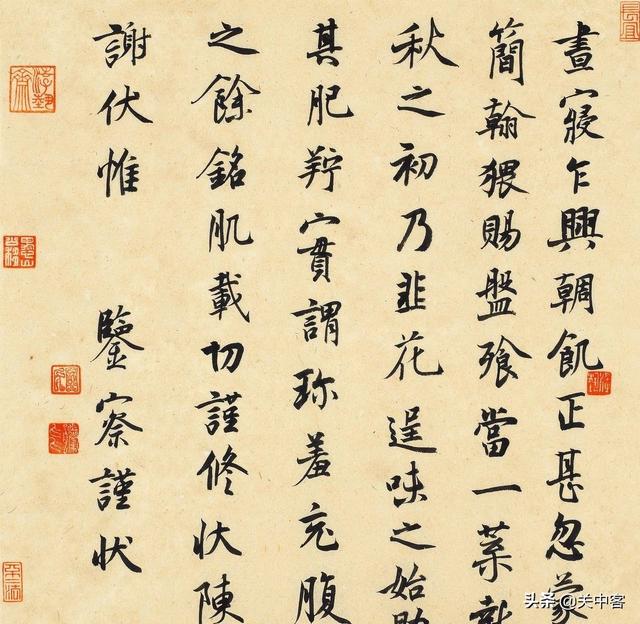 晝寢乍興輖飢正甚忽蒙
簡翰猥賜盤飧當一葉報
秋之初乃韭花逞味之始助
其肥羜實謂珍羞充腹
之餘銘肌載切謹修狀陳
謝伏惟
鑒察謹狀
头条 @关中客